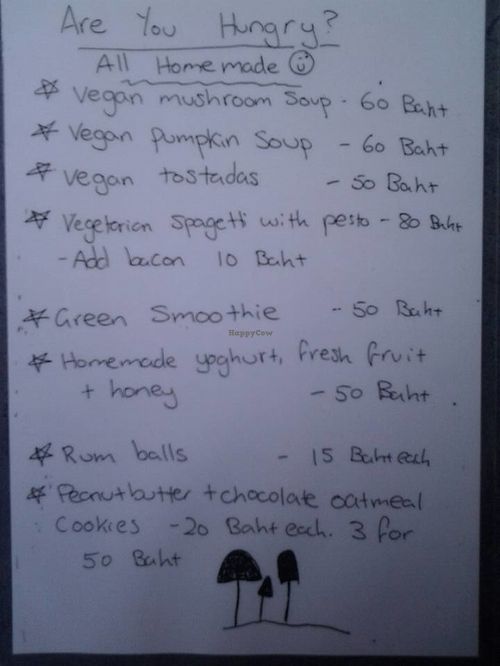 Are You Hungry?
All Homemade
Vegan mushroom Soup - 60 Baht
Vegan Pumpkin Soup - 60 Baht
Vegan tostadas - 50 Baht
Vegetarian Spagetti with pesto - 80 Baht
- Add bacon 10 Baht
Green Smoothie - 50 Baht
HappyCow
Homemade yoghurt, fresh fruit
+ honey - 50 Baht.
Rum balls - 15 Baht each
Peanutbutter + chocolate oatmeal
Cookies - 20 Baht each. 3 for
50 Baht